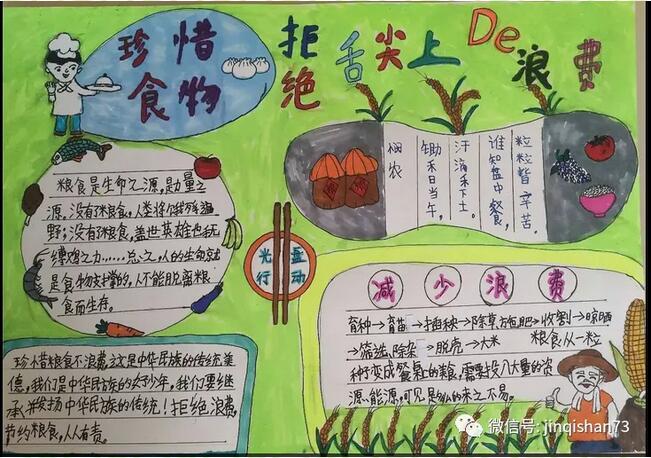 珍惜
食物
拒绝
舌尖上De浪费
悯农
锄禾日当午,
汗滴禾下土。
谁知盘中餐,
粒粒皆辛苦。
粮食是生命之源,是力量之
源,没有了粮食,人类将饿殍遍
野;没有了粮食,盖世英雄也无
缚鸡之力……总之,人的生命就
是食物支撑的,人不能脱离粮
食而生存。
光盘
行动
减少浪费
育种→育苗→插秧→除草、施肥→收割→晾晒
→筛选、除杂→脱虎→大米 粮食从一粒
种变成餐桌的粮,需要投入大量的资
源、能源,可见是多么的来之不易。
珍惜粮食不浪费,这是中华民族的传统美
德,我们是中华民族的好少年,我们要继
承并发扬中华民族的传统!拒绝浪费
节约粮食,人人有责。
微信号: jinqishan73